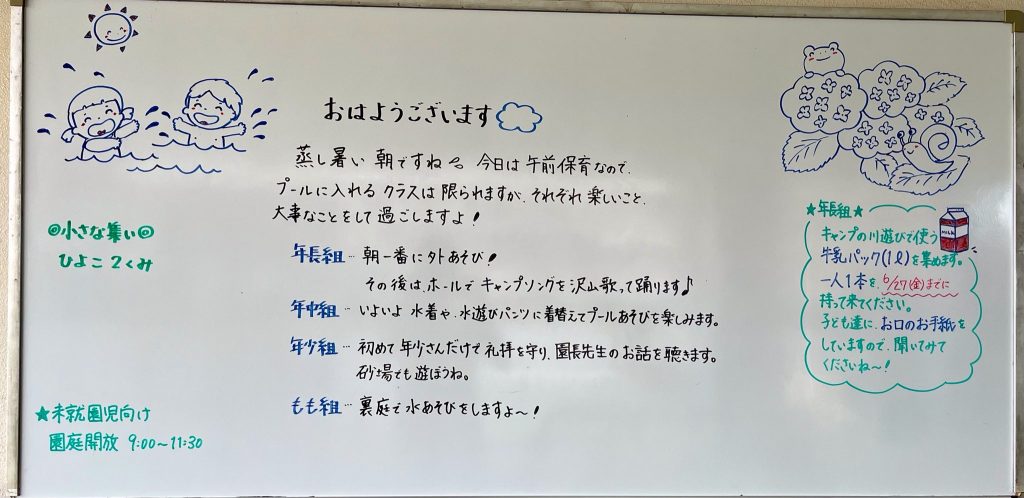 おはようございます
蒸し暑い 朝ですね 今日は 午前保育なので、
プールに入れる クラスは 限られますが、それぞれ 楽しいこと、
大事なことをして 過ごしますよ!
年長組… 朝一番に外あそび!
その後は、ホールで キャンプソングを 沢山歌って踊ります♪
年中組… いよいよ 水着や、水遊びパンツに着替えてプールあそびを楽しみます。
年少組… 初めて 年少さんだけで 礼拝を守り、園長先生の お話を聴きます。
砂場でも 遊ぼうね。
もも組… 裏庭で 水あそびをしますよ〜!
◎小さな集い◎
ひよこ 2くみ
★未就園児向け
園庭開放 9:00〜11:30
★年長組★
MILK
キャンプの川遊びで使う
牛乳パック(1ℓ)を集めます。
一人1本を、6/27(金)までに
持って来てください。
子ども達に、お口のお手紙を
していますので、聞いてみて
くださいね〜!